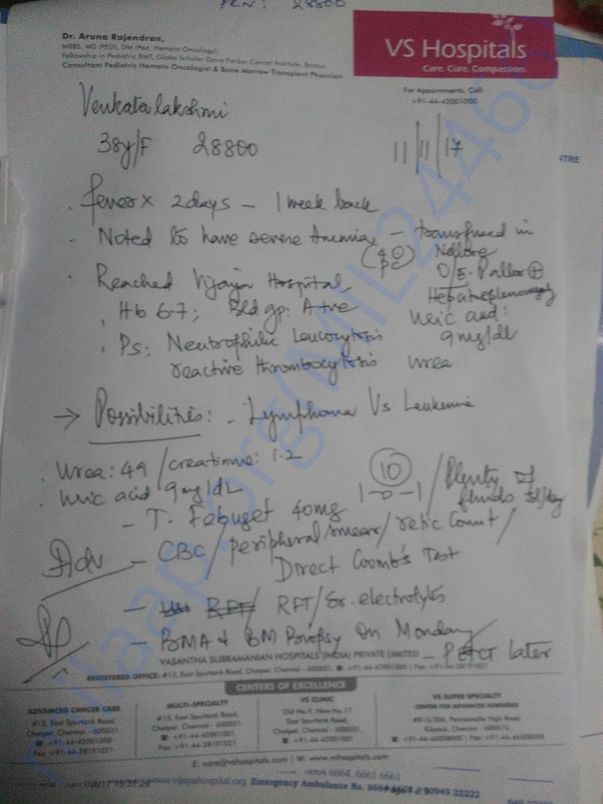 PEN: 28800
Dr. Aruna Rajendran,
MBBS, MD (PED), DM (Ped. Hemato Oncology),
Fellowship in Pediatric BMT, Globe Scholar Dana Farber Cancer Institute, Boston
Consultant Pediatric Hemato Oncologist & Bone Marrow Transplant Physician
VS Hospitals
Care. Cure. Compassion.
For Appointments, Call:
+91-44-42001000
Venkata lakshmi
38y/F 28800
11/11/17
NTRE
. fever x 2 days - 1 week back
. Noted to have severe Anemia - transfused in
(4 PC) Nellore
O/E. Pallor +
. Reached Vijaya Hospital,
Hepatosplenomegaly
Hb 6.7; Bld gp: A +ve
Uric acid:
9 mg/dl
. Ps: Neutrophilic Leucocytosis
reactive thrombocytosis
urea
→ Possibilities: - Lymphoma Vs Leukemia
. Urea: 49 / creatinine: 1.2
. Uric acid 9 mg/dL
- T. Febuget 40mg
1-0-1 (10) / Plenty of
fluids 3l/day
Adv - CBC / peripheral smear / retic count /
Direct Coomb's Test
- RFT / Sr. electrolytes
- BMA & BM Biopsy On Monday
- PETCT later
VASANTHA SUBRAMANIAN HOSPITALS (INDIA) PRIVATE LIMITED
REGISTERED OFFICE: #13, East Spurtank Road, Chetpet, Chennai - 600031. ☎: +91-44-42001000 | Fax: +91-44-28191021
CENTERS OF EXCELLENCE
ADVANCED CANCER CARE
#13, East Spurtank Road,
Chetpet, Chennai - 600031.
☎: +91-44-42001000
Fax: +91-44-28191021
MULTI-SPECIALTY
#13, East Spurtank Road,
Chetpet, Chennai - 600031.
☎: +91-44-42001000
Fax: +91-44-28191021
VS CLINIC
Old No.9, New No.17
East Spurtank Road,
Chetpet, Chennai - 600031.
VS SUPER SPECIALTY
CENTER FOR ADVANCED SURGERIES
#815/306, Poonamallee High Road,
Kilpauk, Chennai - 600010.
E: care@vshospitals.com | W: www.vshospitals.com
6664 6664, 6661 6661
www.vijayahospital.org Emergency Ambulance No.
milaap.org/MIL244